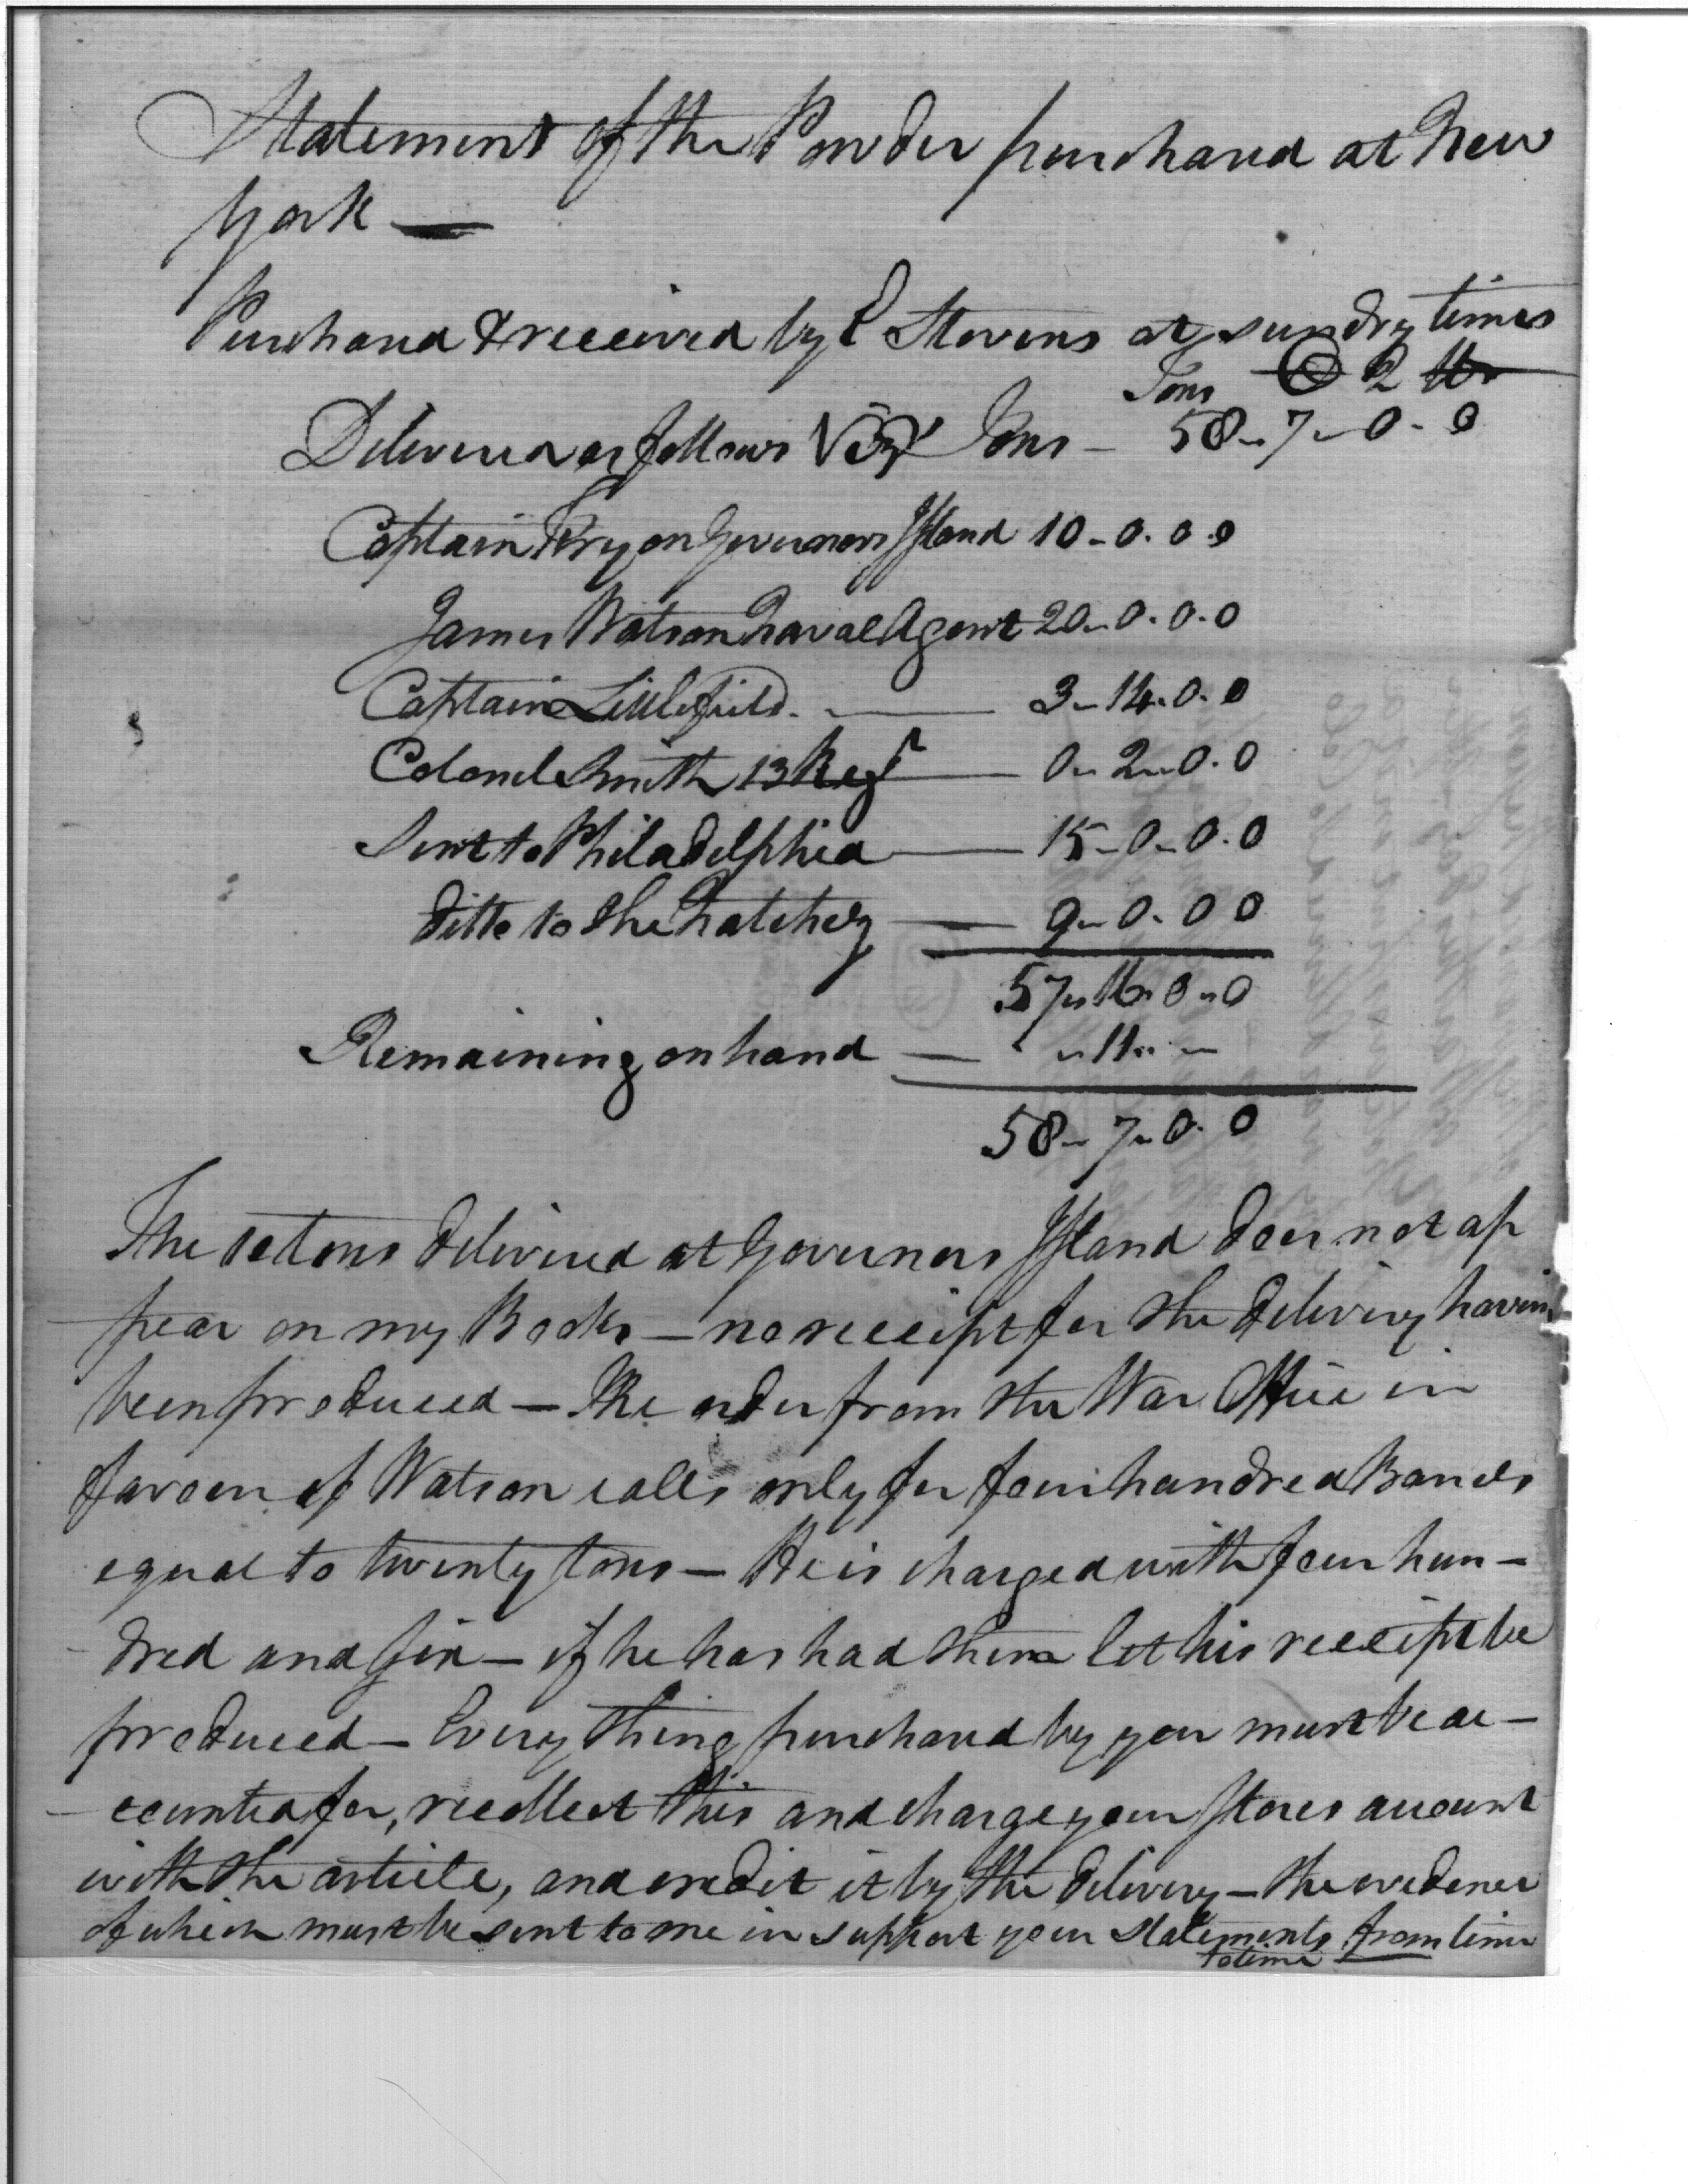 Statement of the Powder purchased at New
York —
Purchased & received by E Stevens at sundry times
Tons C 2 lbs
Delivered as follows Viz' Tons - 58-7-0-0
Captain Fry on Governors Island 10-0.0.0
James Watson Naval Agent 20-0.0.0
Captain Littlefield. — 3-14.0.0
Colonel Smith 13 Regt — 0-2-0.0
Sent to Philadelphia — 15-0-0.0
ditto to the Natchez — 9-0.0 0
57-16-0-0
Remaining on hand — " - 11 .. -
58-7-0.0
The ten tons delivered at Governors Island does not ap
pear on my Books — no receipt for the delivery having
been produced — The order from the War Office in
favour of Watson calls only for four hundred Barrels
equal to twenty tons — He is charged with four hun-
dred and six — if he has had them let his receipt be
produced — Every thing purchased by you must be ac-
counted for, recollect this and charge your Stores account
with the article, and credit it by the delivery — the evidence
of which must be sent to me in support your statements from time
to time